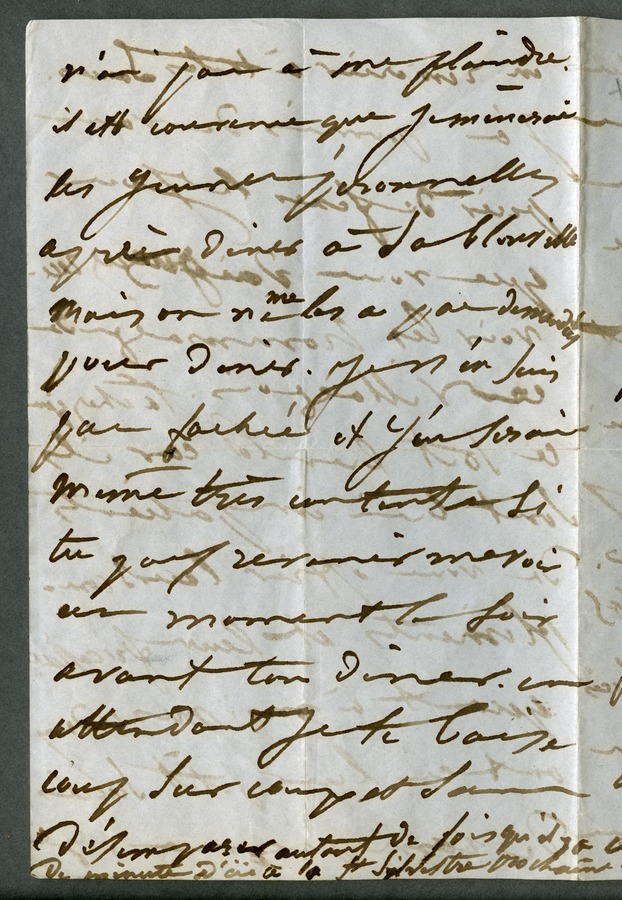 n'ai pas à me plaindre.
il est convenu que je mènerai
les jeunes personnelles
après diner à la Blouville
mais on ne me les a pas demandées
pour diner. je n'en suis
pas fachée et j'en serai
même très contente si
tu peux revenir me voir
un moment le soir
avant ton diner. en
attendant je te baise
coup sur coup et sans
désemparer autant de fois qu'il y a
de minute d'ici à la St Silvestre prochaine